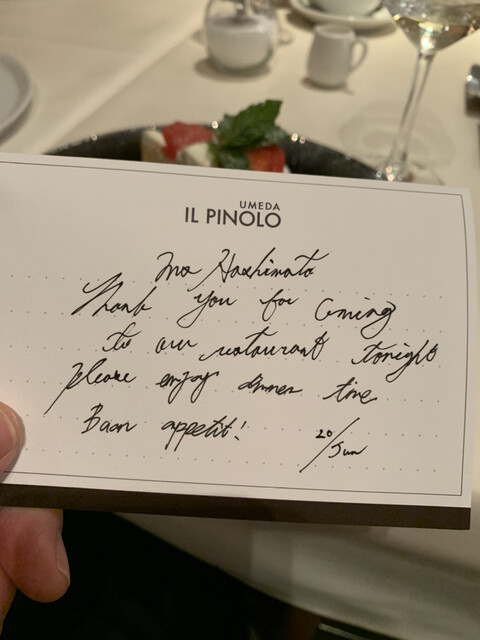 UMEDA
IL PINOLO
Ms Hashimoto
Thank you for coming
to our restaurant tonight
Please enjoy dinner time
Buon appetit!
20/Jun